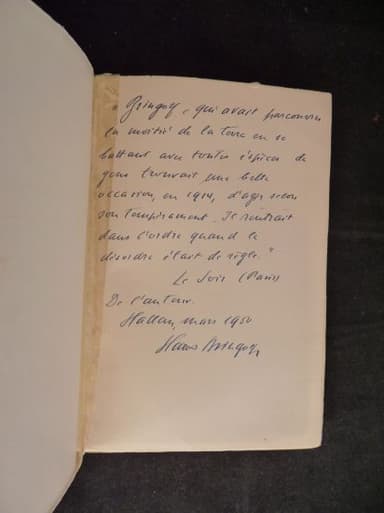 „ Bringolf, qui avait parcouru
la moitié de la Terre en se
battant avec toutes espèces de
gens trouvait une belle
occasion, en 1914, d'agir selon
son tempérament. Il rentrait
dans l'ordre quand le
désordre était de règle."
Le Soir (Paris)
De l'auteur.
Hallau, mars 1950
Hans Bringolf